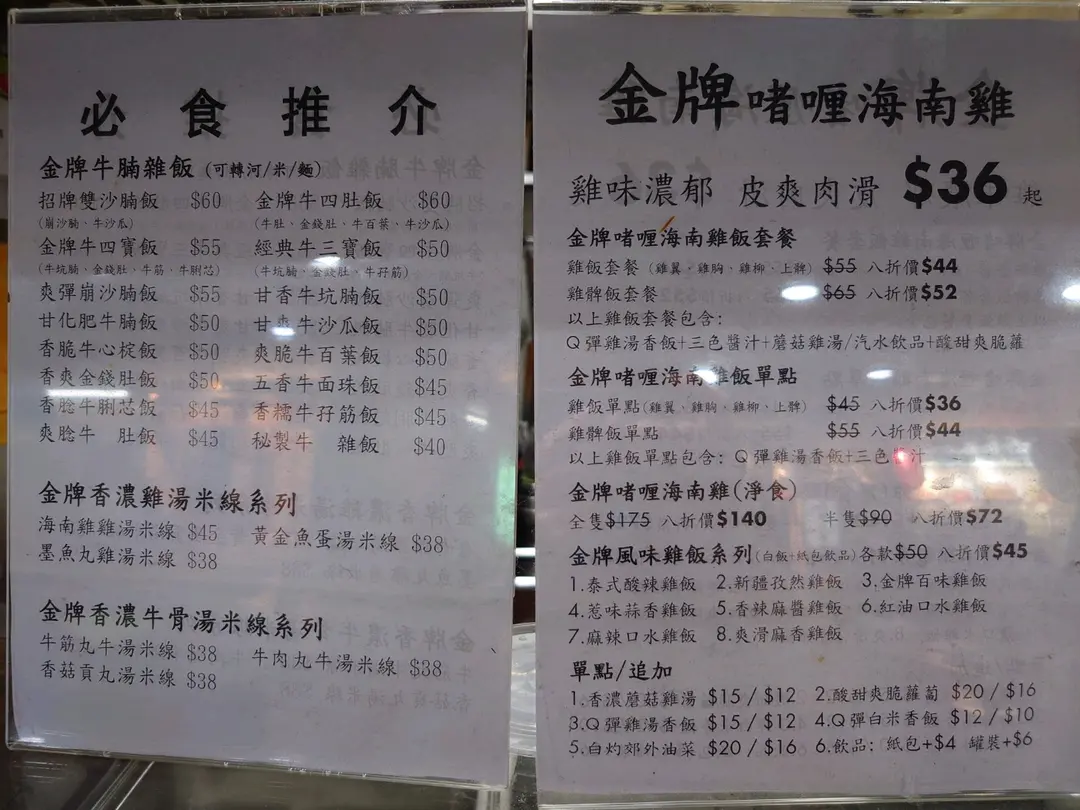 必食推介
金牌牛腩雜飯 (可轉河/米/麵)
招牌雙沙腩飯 $60 金牌牛四肚飯 $60
(崩沙腩、牛沙瓜) (牛肚、金錢肚、牛百葉、牛沙瓜)
金牌牛四寶飯 $55 經典牛三寶飯 $50
(牛坑腩、金錢肚、牛筋、牛脷芯) (牛坑腩、金錢肚、牛孖筋)
爽彈崩沙腩飯 $55 甘香牛坑腩飯 $50
甘化肥牛腩飯 $50 甘爽牛沙瓜飯 $50
香脆牛心椗飯 $50 爽脆牛百葉飯 $50
香爽金錢肚飯 $50 五香牛面珠飯 $45
香腍牛脷芯飯 $45 香糯牛孖筋飯 $45
爽腍牛 肚飯 $45 秘製牛 雜飯 $40
金牌香濃雞湯米線系列
海南雞雞湯米線 $45 黃金魚蛋湯米線 $38
墨魚丸雞湯米線 $38
金牌香濃牛骨湯米線系列
牛筋丸牛湯米線 $38 牛肉丸牛湯米線 $38
香菇貢丸湯米線 $38
金牌啫喱海南雞
雞味濃郁 皮爽肉滑 $36 起
金牌啫喱海南雞飯套餐
雞飯套餐 (雞翼、雞胸、雞柳、上髀) $55 八折價$44
雞髀飯套餐 $65 八折價$52
以上雞飯套餐包含:
Q彈雞湯香飯+三色醬汁+蘑菇雞湯/汽水飲品+酸甜爽脆蘿
金牌啫喱海南雞飯單點
雞飯單點(雞翼、雞胸、雞柳、上髀) $45 八折價$36
雞髀飯單點 $55 八折價$44
以上雞飯單點包含: Q彈雞湯香飯+三色 汁
金牌啫喱海南雞(淨食)
全隻$175 八折價$140 半隻$90 八折價$72
金牌風味雞飯系列(白飯+紙包飲品)各款$50 八折價$45
1.泰式酸辣雞飯 2.新疆孜然雞飯 3.金牌百味雞飯
4.惹味蒜香雞飯 5.香辣麻醬雞飯 6.紅油口水雞飯
7.麻辣口水雞飯 8.爽滑麻香雞飯
單點/追加
1.香濃蘑菇雞湯 $15 / $12 2.酸甜爽脆蘿蔔 $20 / $16
3.Q彈雞湯香飯 $15 / $12 4.Q彈白米香飯 $12 / $10
5.白灼郊外油菜 $20 / $16 6.飲品: 紙包+$4 罐裝+$6